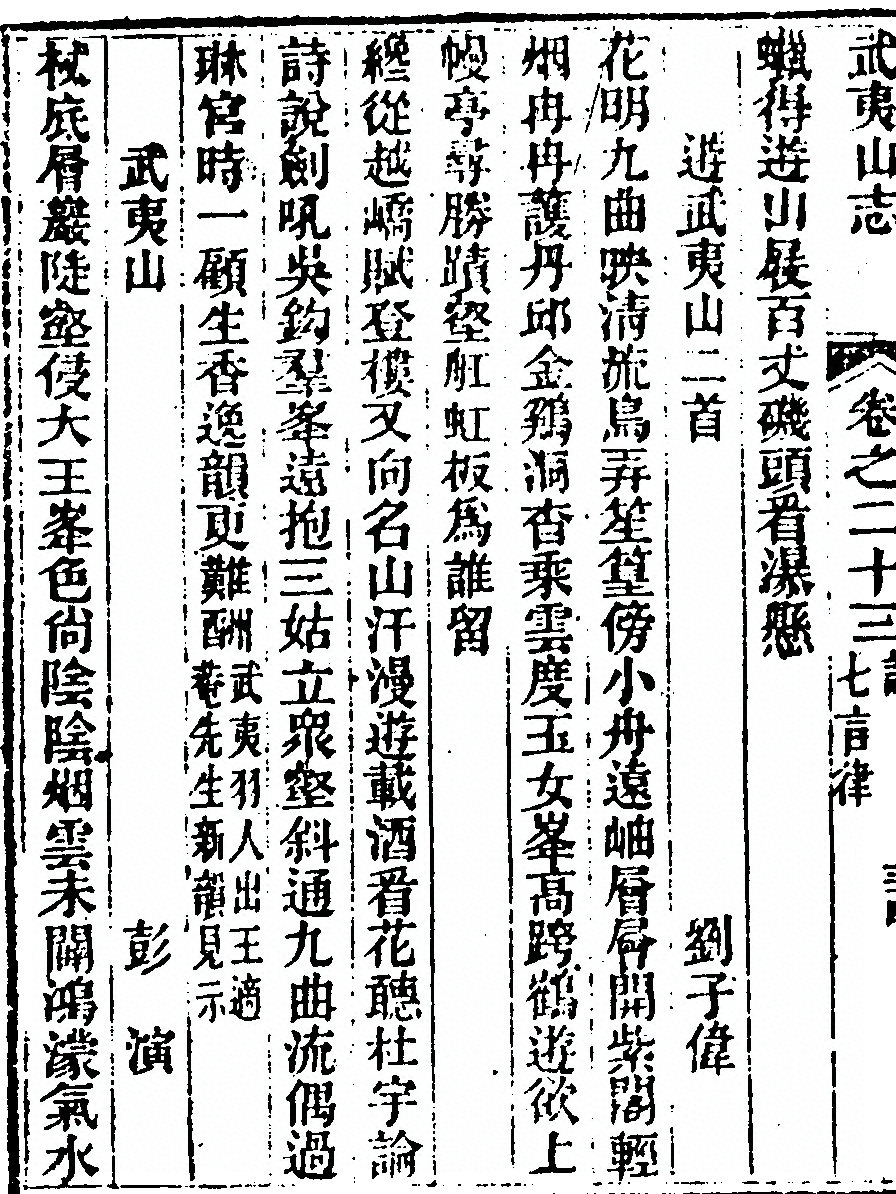 武夷山志 卷之二十三 七言律
蠟得遊山屐百丈磯頭看瀑懸
遊武夷山二首 劉子偉
花明九曲映清流鳥弄笙簧傍小舟遠岫層層開紫閣輕
烟冉冉護丹邱金鷄洞杳乘雲度玉女峯高跨鶴遊欲上
幔亭尋勝蹟壑船虹板為誰留
纔從越嶠賦登樓又向名山汗漫遊載酒看花聽杜宇論
詩說劍吼吳鈎羣峯遠抱三姑立眾壑斜通九曲流偶過
琳宮時一顧生香逸韻更難酬武夷羽人出王適菴先生新韻見示
武夷山 彭演
杖底層巖陡壑侵大王峯色尚陰陰烟雲未闢鴻濛氣水